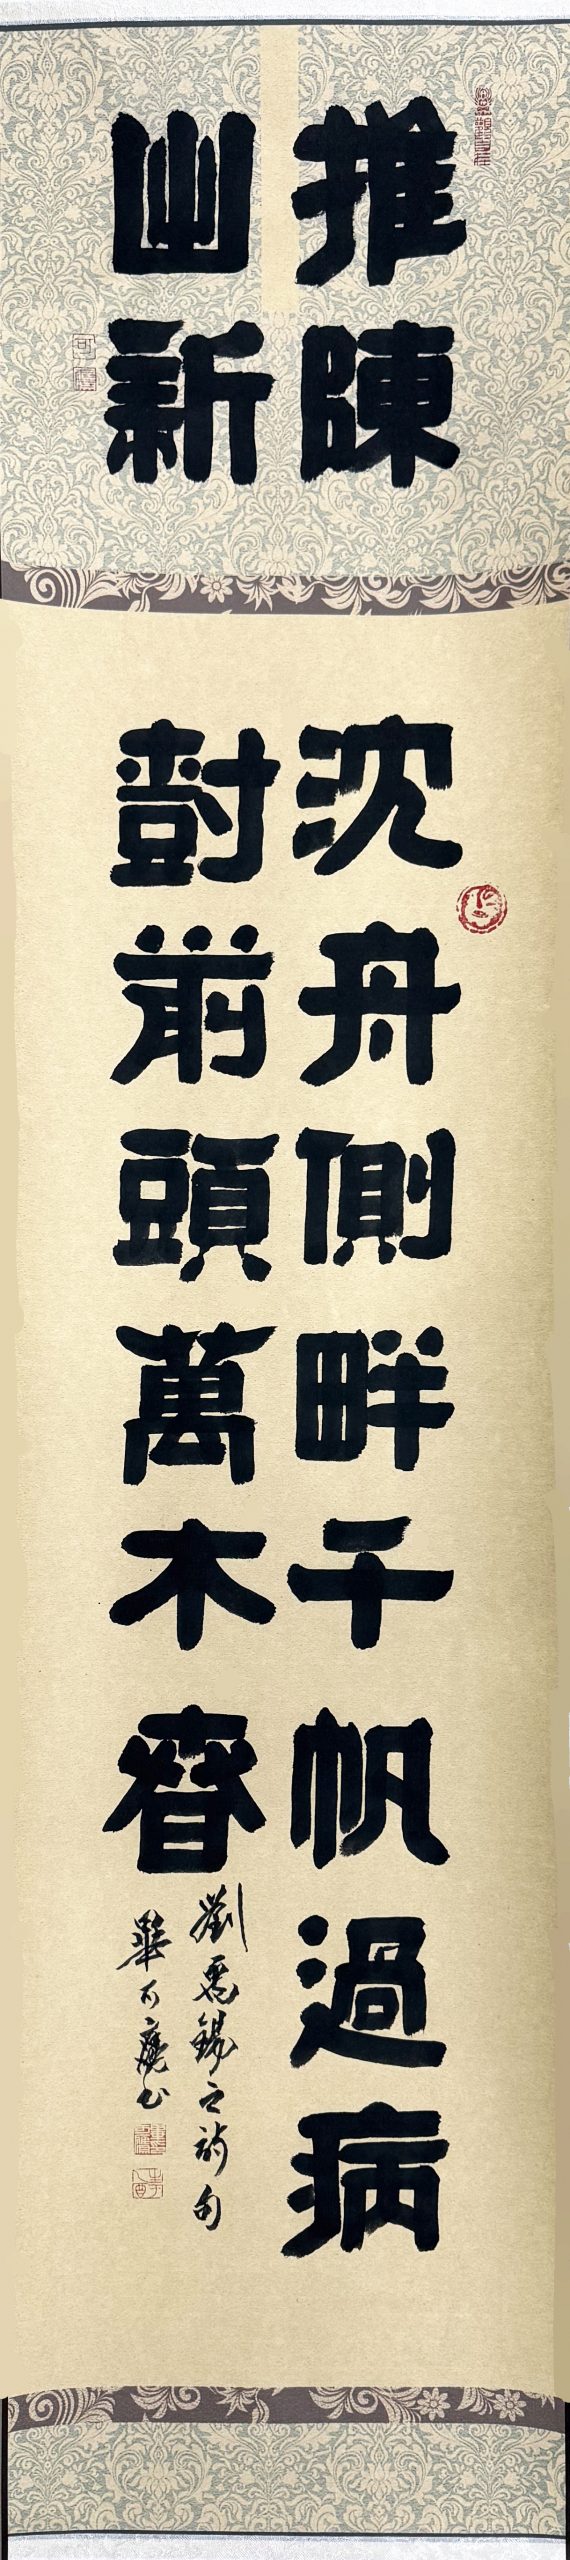 推陳
出新
沈舟側畔千帆過病
樹前頭萬木春
劉禹錫之詩句